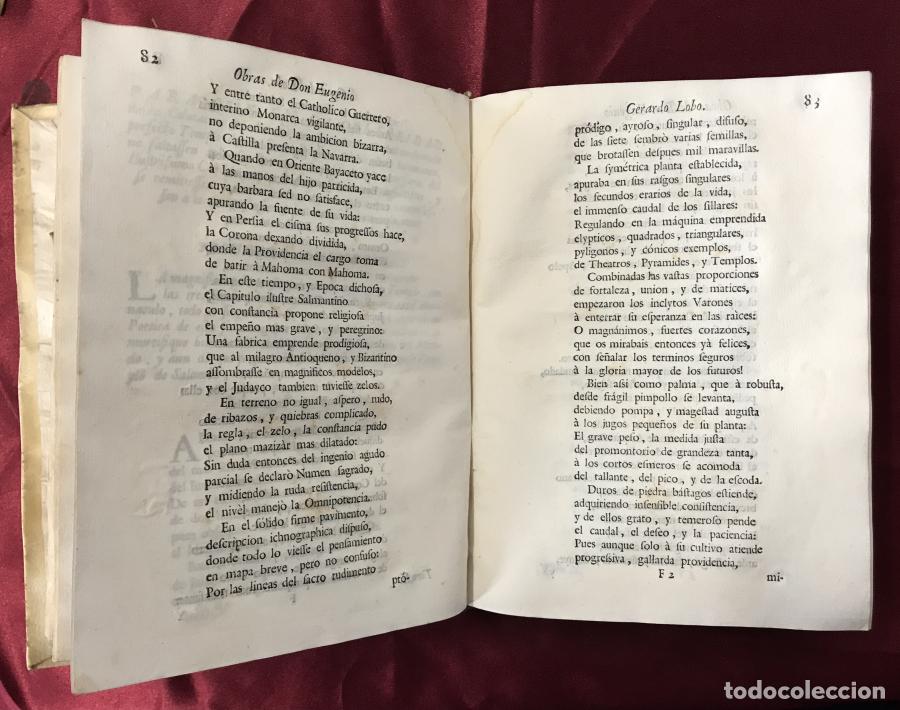 82
Obras de Don Eugenio
Y entre tanto el Catholico Guerrero,
interino Monarca vigilante,
no deponiendo la ambicion bizarra,
à Castilla presenta la Navarra.
Quando en Oriente Bayaceto yace
à las manos del hijo patricida,
cuya barbara sed no satisface,
apurando la fuente de su vida:
Y en Persia el cisma sus progressos hace,
la Corona dexando dividida,
donde la Providencia el cargo toma
de batir à Mahoma con Mahoma.
En este tiempo, y Epoca dichosa,
el Capitulo ilustre Salmantino
con constancia propone religiosa
el empeño mas grave, y peregrino:
Una fabrica emprende prodigiosa,
que al milagro Antioqueno, y Bizantino
assombrasse en magnificos modelos,
y el Judayco tambien tuviesse zelos.
En terreno no igual, aspero, rudo,
de ribazos, y quiebras complicado,
la regla, el zelo, la constancia pudo
el plano mazizàr mas dilatado:
Sin duda entonces del ingenio agudo
parcial se declarò Numen sagrado,
y midiendo la ruda resistencia,
el nivèl manejo la Omnipotencia.
En el sólido firme pavimento,
descripcion ichnographica dispuso,
donde todo lo viesse el pensamiento
en mapa breve, pero no confuso:
Por las lineas del sacro rudimento
pró-
Gerardo Lobo.
83
pródigo, ayroso, singular, difuso,
de las siete sembrò varias semillas,
que brotassen despues mil maravillas.
La symétrica planta establecida,
apuraba en sus rasgos singulares
los fecundos erarios de la vida,
el immenso caudal de los sillares:
Regulando en la máquina emprendida
elypticos, quadrados, triangulares,
pyligonos, y cónicos exemplos,
de Theatros, Pyramides, y Templos.
Combinadas las vastas proporciones
de fortaleza, union, y de matices,
empezaron los inclytos Varones
à enterrar su esperanza en las raìces:
O magnánimos, fuertes corazones,
que os mirabais entonces yà felices,
con señalar los terminos seguros
à la gloria mayor de los futuros!
Bien assi como palma, que à robusta,
desde frágil pimpollo se levanta,
debiendo pompa, y magestad augusta
à los jugos pequeños de su planta:
El grave peso, la medida justa
del promontorio de grandeza tanta,
à los cortos esmeros se acomoda
del tallante, del pico, y de la escoda.
Duros de piedra bástagos estiende,
adquiriendo insensible consistencia,
y de ellos grato, y temeroso pende
el caudal, el deseo, y la paciencia:
Pues aunque solo à su cultivo atiende
progressiva, gallarda providencia,
F 2
mi-
todocoleccion